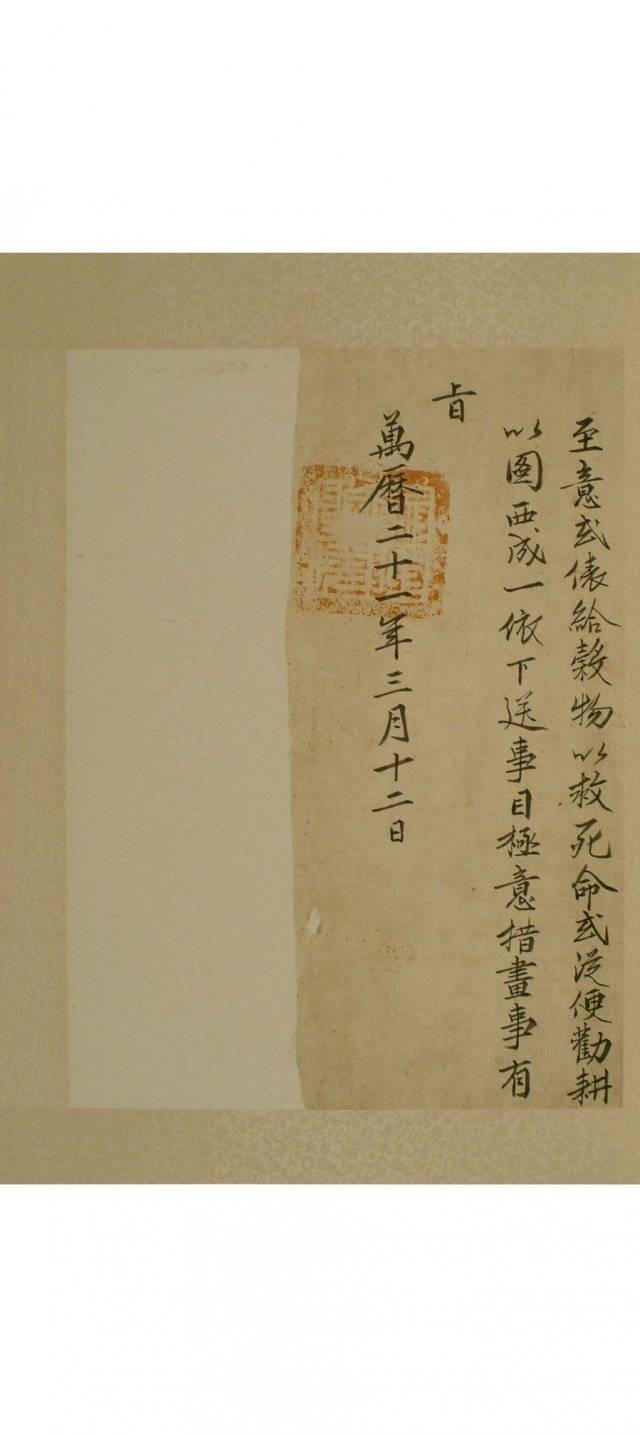 至意或俵給穀物以救死命或從便勸耕
以圖西成一依下送事目極意措畫事有
旨
萬曆二十一年三月十二日